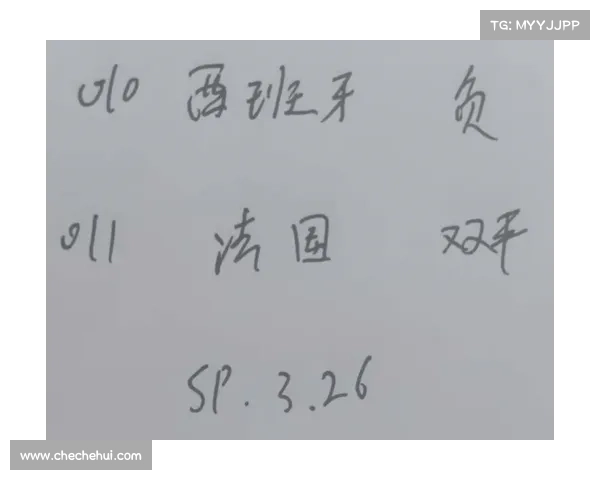 TG: MYYJJPP
010 西班牙 负
011 法国 双平
SP. 3.26
www.chechehui.com